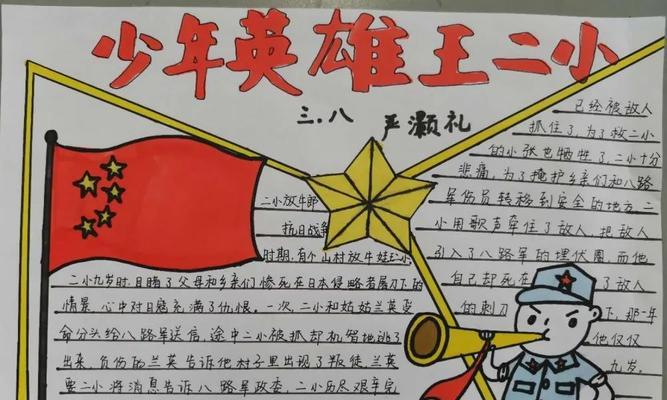 少年英雄王二小
三.八 严灏礼
二小放牛郎
抗日战争
时期,有个山村放牛娃王小
二小九岁时,目睹了父母和乡亲们惨死在日本侵略者屠刀下的
情景,心中对日寇充满了仇恨。一次,二小和姑姑兰英要
命分头给八路军送信,途中二小被抓却机智地逃了
出来,负伤的兰英告诉他村子里出现了叛徒,兰英
要二小将消息告诉八路军政委,二小历尽艰辛完
已经被敌人
抓住了,为了救二小
的小张也牺牲了,二小十分
悲痛,为了掩护乡亲们和八路
军伤员转移到安全的地方,二
小用歌声牵住了敌人,把敌人
引入了八路军的埋伏圈,而他
自己却死在了敌人
的刺刀下,那一年
他仅仅
九岁。